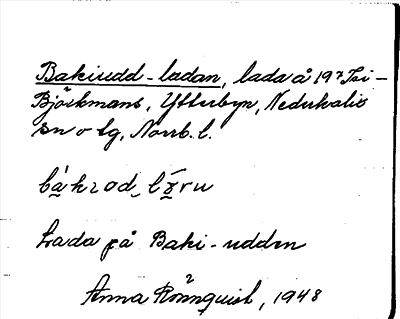 Bakiudd-ladan, lada å 19⁷ Isi-
Björkmans, Ytterbyn, Nederkalix
sn o tg, Norrb. l.
Lada på Baki-udden
Anna Rönnquist, 1948